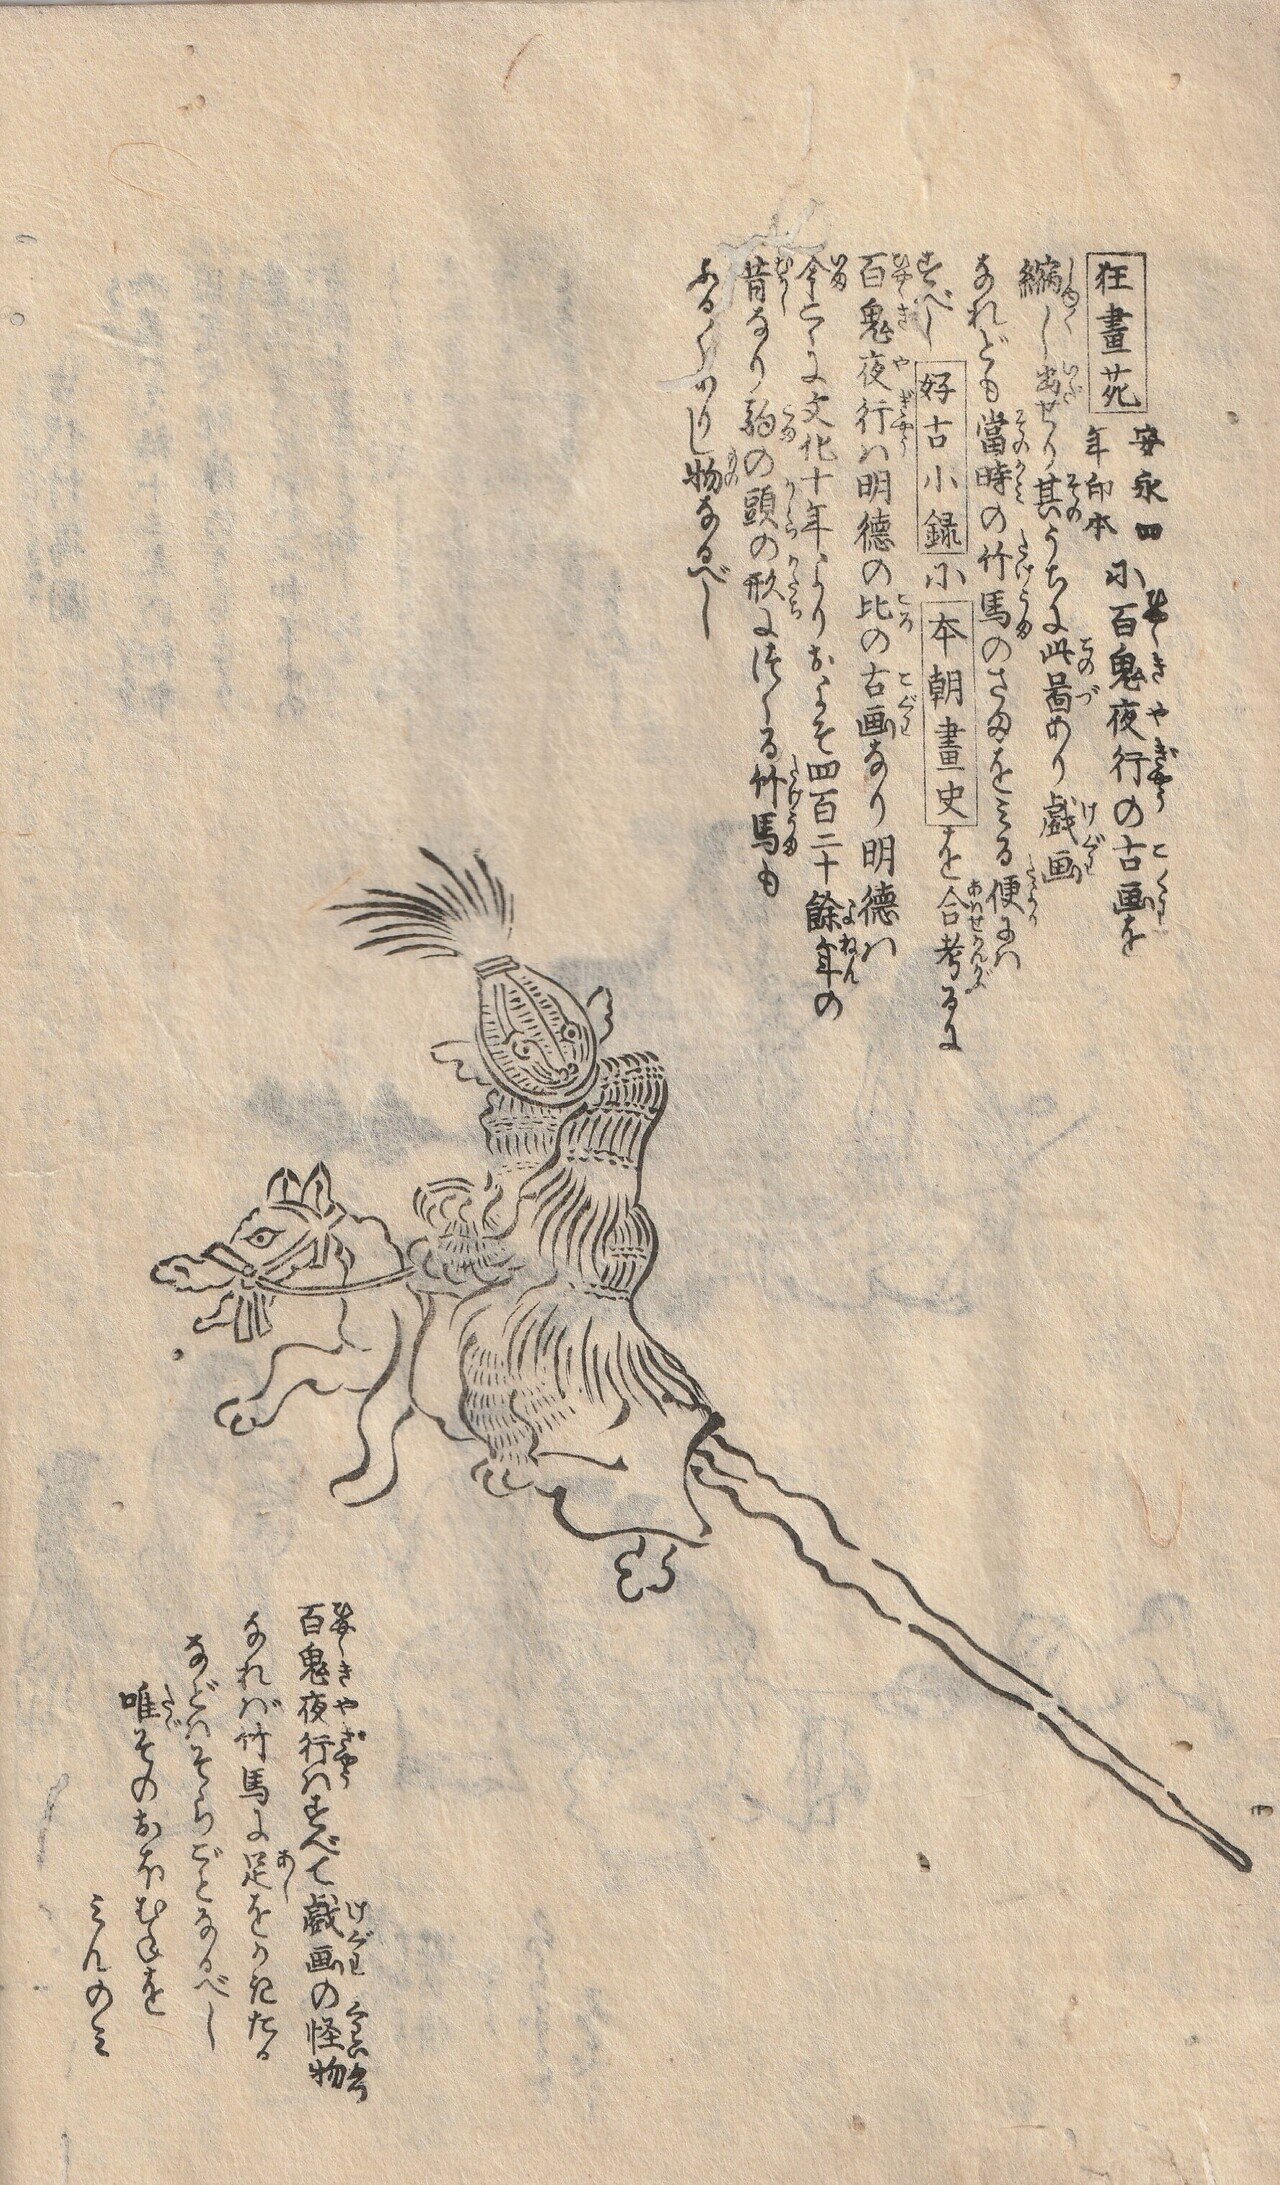 狂畫苑 安永四年印本 に百鬼夜行の古画を
縮し出せり其うちに此啚あり戯画
なれども當時の竹馬のさまをミる便にハ
すべし 好古小録 に 本朝畫史 を合考るに
百鬼夜行ハ明徳の比の古画なり明徳ハ
今こゝに文化十年よりおよそ四百二十餘年の
昔なり駒の頭の形につくる竹馬も
ふるくありし物なるべし
百鬼夜行ハすべて戯画の怪物
なれバ竹馬に足をかきたる
などハそらごとなるべし
唯そのおほむねを
ミんのミ